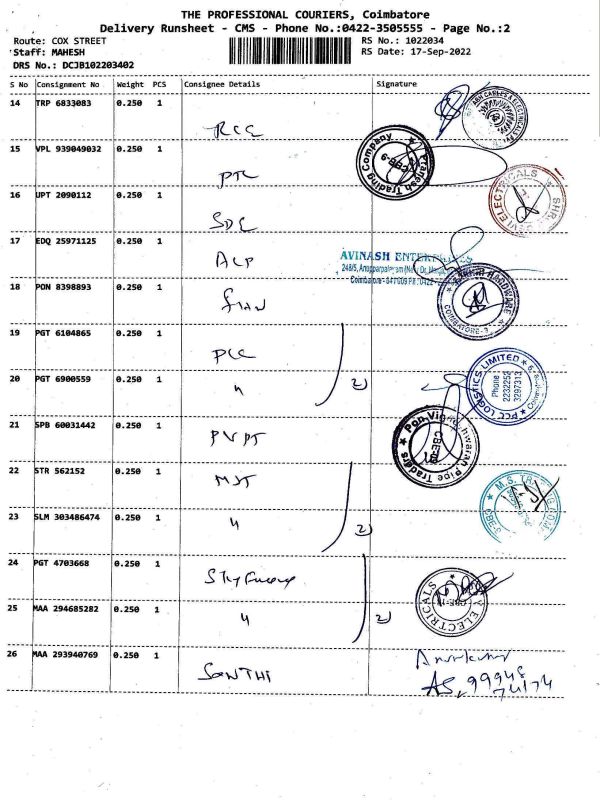 THE PROFESSIONAL COURIERS, Coimbatore
Delivery Runsheet - CMS - Phone No.:0422-3505555 - Page No.:2
Route: COX STREET
RS No.: 1022034
Staff: MAHESH
RS Date: 17-Sep-2022
DRS No.: DCJB102203402
S No Consignment No Weight PCS Consignee Details Signature
14 TRP 6833083 0.250 1
RCC
15 VPL 939049032 0.250 1
Pranesh Trading Company
CBE-9
PTC
16 UPT 2090112 0.250 1
ELECTRICALS
SDE
17 EDQ 25971125 0.250 1
ALP
AVINASH
Coimbatore
18 PON 8398893 0.250 1
HARDWARE
COIMBATORE-3
19 PGT 6104865 0.250 1
PLC
20 PGT 6900559 0.250 1
"
2)
PCC LOGISTICS LIMITED
Phone
2232255
3297313
21 SPB 60031442 0.250 1
PVPT
Pipe Traders
22 STR 562152 0.250 1
MST
M.S.
23 SLM 303486474 0.250 1
"
2)
24 PGT 4703668 0.250 1
ELECTRICALS
25 MAA 294685282 0.250 1
"
2)
26 MAA 293940769 0.250 1
SANTHI
99948
74174